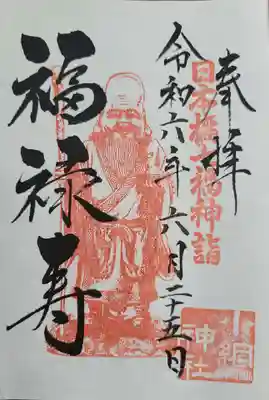 奉拝
日本橋七福神詣
令和六年六月二十五日
福禄寿
小網神社